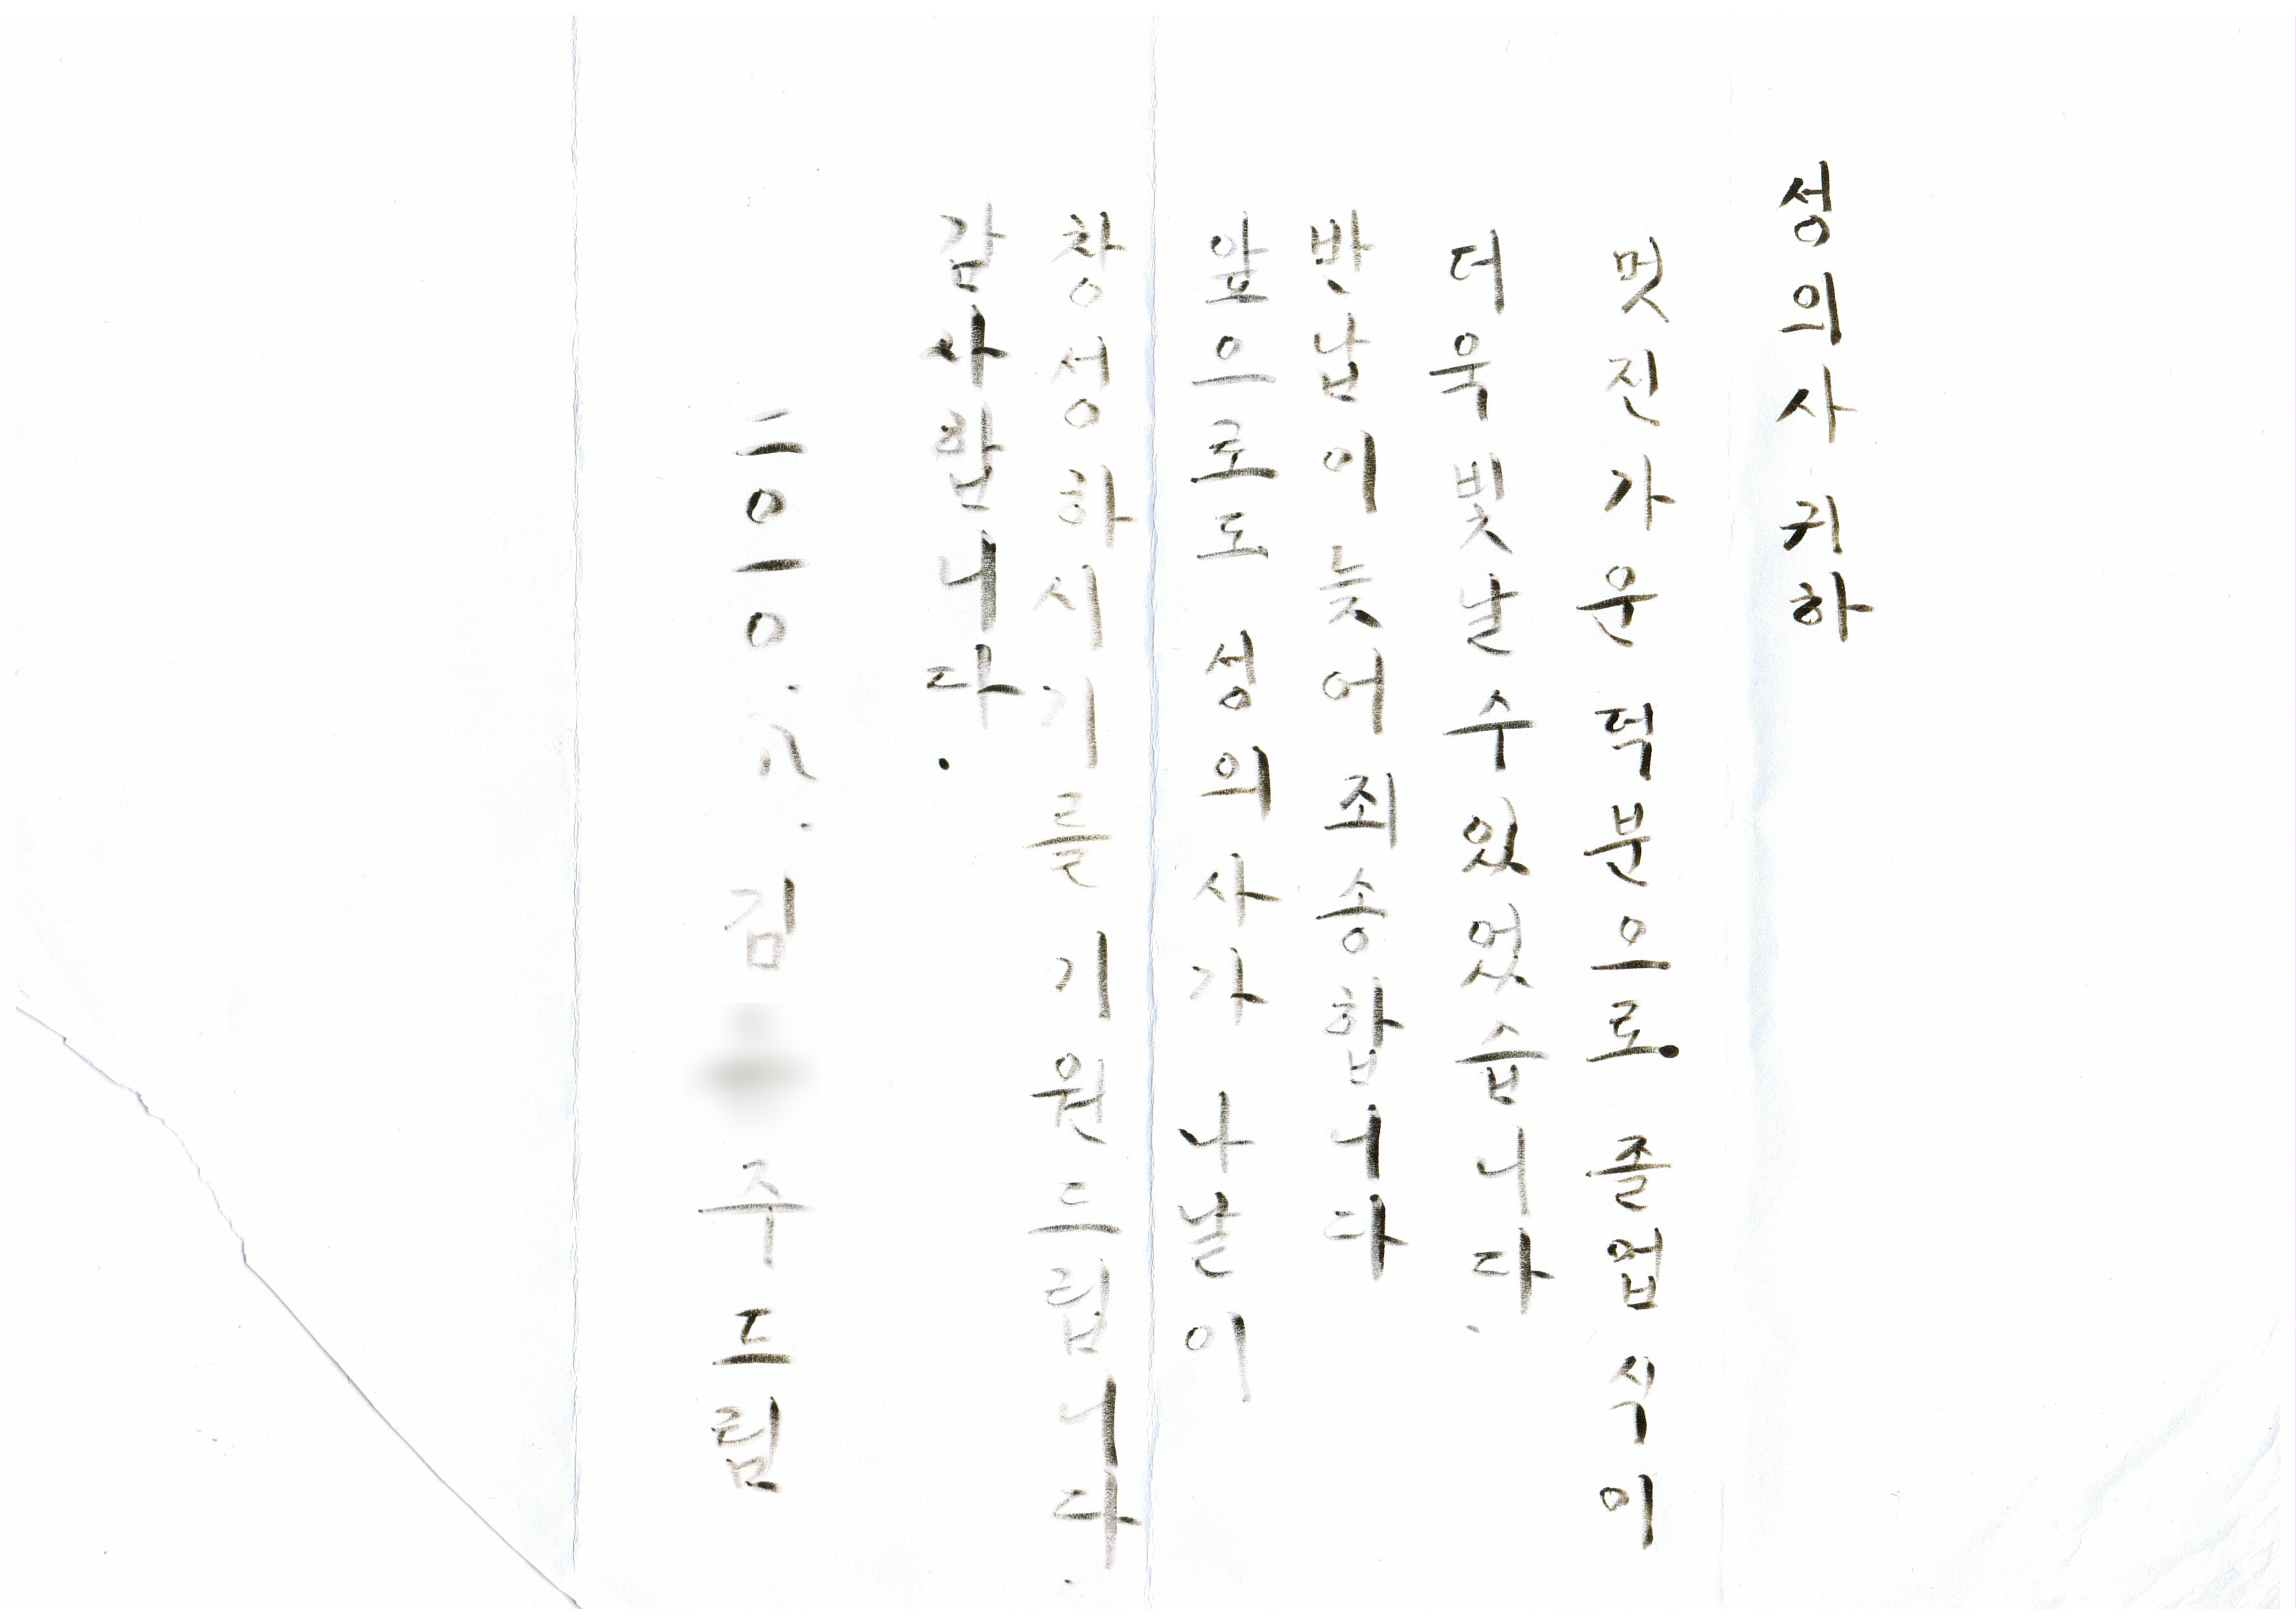 성의사 귀하
멋진 가운 덕분으로 졸업식이
더욱 빛날 수 있었습니다.
반납이 늦어 죄송합니다
앞으로도 성의사가 나날이
창성하시기를 기원드립니다.
감사합니다.
二0一0.八.김 주 드림